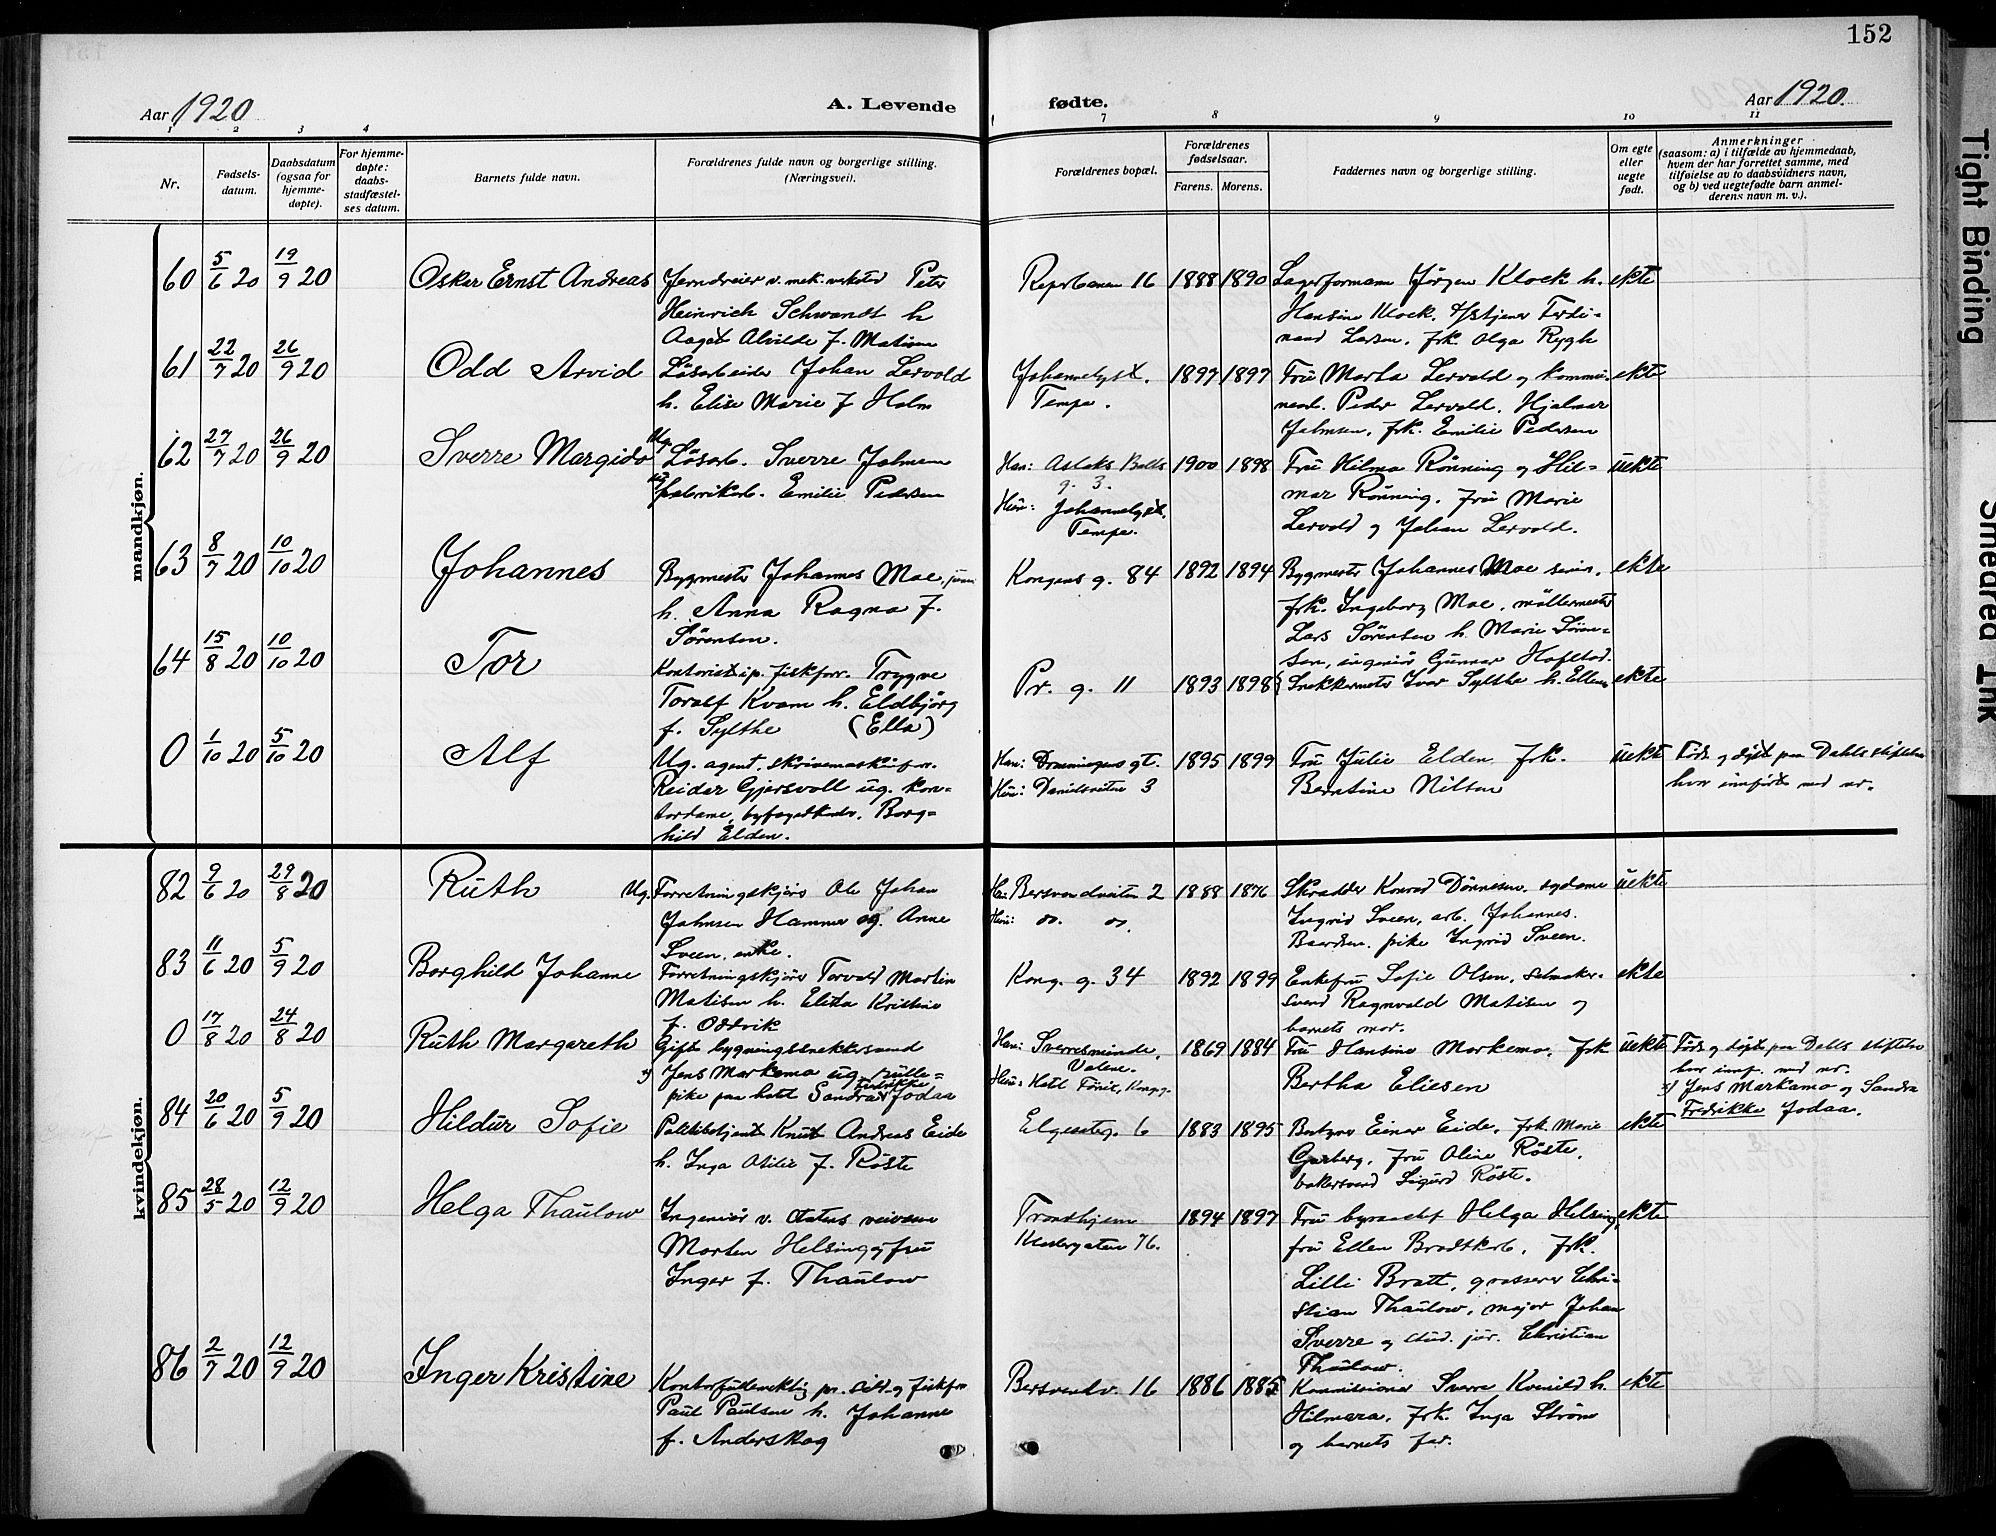 152
Aar 1920
A. Levende
fødte.
Aar 1920.
1 2 3 4 7 8 9 10 11
Nr.
Fødsels-
datum.
Daabsdatum
(ogsaa for
hjemme-
døpte).
For hjemme-
døpte:
daabs-
stadfæstel-
ses datum.
Barnets fulde navn.
Forældrenes fulde navn og borgerlige stilling.
(Næringsvei).
Forældrenes bopæl.
Forældrenes
fødselsaar.
Farens. Morens.
Faddernes navn og borgerlige stilling.
Om egte
eller
uegte
født.
Anmerkninger
(saasom: a) i tilfælde av hjemmedaab,
hvem der har forrettet samme, med
tilføielse av to daabsvidners navn,
og b) ved uegtefødte barn anmel-
derens navn m. v.).
mandkjøn.
60 5/6 20 19/9 20 Oskar Ernst Andreas
Jerndreier v. mek. verksted Peter
Heinrich Schwandt h
Aagot Alvilde f. Matisen
Reperbanen 16 1888 1890
Lagerformann Jörgen Klock h.
Hansine Klock. Ferdi-
nand Larsen, frk. Olga Rygh
ekte
61 22/7 20 26/9 20 Odd Arvid
Lösarbeider Johan Lervold
h. Elise Marie f Holm
Johanneslyst.
Tempe.
1897 1897
Fru Marta Lervold og
Peder Lervold. Hjalmar
Johnsen, frk. Emilie Pedersen
ekte
62 27/7 20 26/9 20 Sverre Margido
Ug. Lösarb. Sverre Johnsen
ug. fabrikarb. Emilie Pedersen
Han: Aslak Bolts
g. 3.
Hun: Johanneslyst,
Tempe.
1900 1898
Fru Hilma Rönning og Hil-
mar Rönning. Fru Marie
Lervold og Johan Lervold.
uekte
63 8/7 20 10/10 20 Johannes
Bygmester Johannes Moe, jun.
h. Anna Ragna f.
Sörensen.
Kongens g. 84 1892 1894
Bygmester Johannes Moe senior.
frk. Ingeborg Moe, möllermester
Lars Sörensen h. Marie Sören-
sen, ingeniör Gunnar Hofstad.
ekte
64 15/8 20 10/10 20 Tor
Kontorist i p. fiskforr. Trygve
Toralf Kvam h. Eldbjörg
f. Sylthe (Ella)
Pr. g. 11 1893 1898
Snekkermester Ivar Sylthe h. Ellen
ekte
0 1/10 20 5/10 20 Alf
Ug. agent, skrivemaskinforr.
Reidar Gjersvoll ug. kon-
tordame, Borg-
hild Elden.
Han: Dronningens gt.
Hun: Danielsveiten 3
1895 1899
Fru Julie Elden frk.
Berntine Nilsen
uekte
Född og döpt paa Dahls stiftelse
hvor innfört med nr.
kvindekjøn.
82 9/6 20 29/8 20 Ruth
Ug. Forretningskjörer Ole Johan
Johnsen Hammer og Anne
Sveen, enke.
Han: Bersvendveiten 2
Hun: do. do.
1888 1876
Skredder Konrad Dönnesen, sydame
Ingrid Sveen, arb. Johannes
Baardsen, pike Ingrid Sveen.
uekte
83 11/6 20 5/9 20 Borghild Johanne
Forretningskjörer Torvald Martin
Matisen h. Elida Kristine
f. Oddvik
Kong. g. 34 1892 1899
Enkefru Sofie Olsen, salmaker-
svend Ragnvald Matisen og
barnets mor.
ekte
0 17/8 20 24/8 20 Ruth Margareth
Gift bygningssnekkersvend
x) Jens Markemo ug. rulle-
pike paa hotel Sandra Fredrikke Jodaa
Han: Sverresminde,
Valene.
Hun: Hotel Fönix, Kongg.
1869 1884
Fru Hansine Markemo, frk
Bertha Eliesen
uekte
Född og döpt paa Dahls stiftelse
hvor innf. med nr.
x) Jens Markamo og Sandra
Fredrikke Jodaa.
84 20/6 20 5/9 20 Hildur Sofie
Politibetjent Knut Andreas Eide
h. Inga Otilie f. Röste
Elgesetg. 6 1883 1895
Bestyrer Einar Eide, frk Marie
Garberg, fru Oline Röste,
bakersvend Sigurd Röste.
ekte
85 28/5 20 12/9 20 Helga Thaulow
Ingeniör v. statens veivesen
Morten Helsing og fru
Inger f. Thaulow
Trondhjem
Klostergaten 76.
1894 1897
Fru byraachef Helga Helsing,
fru Ellen Bradtkorb, frk.
Lilli Bratt, grosserer Chri-
stian Thaulow, major Johan
Sverre og stud. jur. Christian
Thaulow.
ekte
86 2/7 20 12/9 20 Inger Kristine
Kontorfuldmektig pr. sild og fiskforr
Paul Paulsen h. Johanne
f. Anderskog
Bersvendv. 16 1886 1885
Kommisioner Sverre Kvenild h.
Hilmara, frk. Inga Ström
og barnets far.
ekte
Tight Binding
Smeared Ink